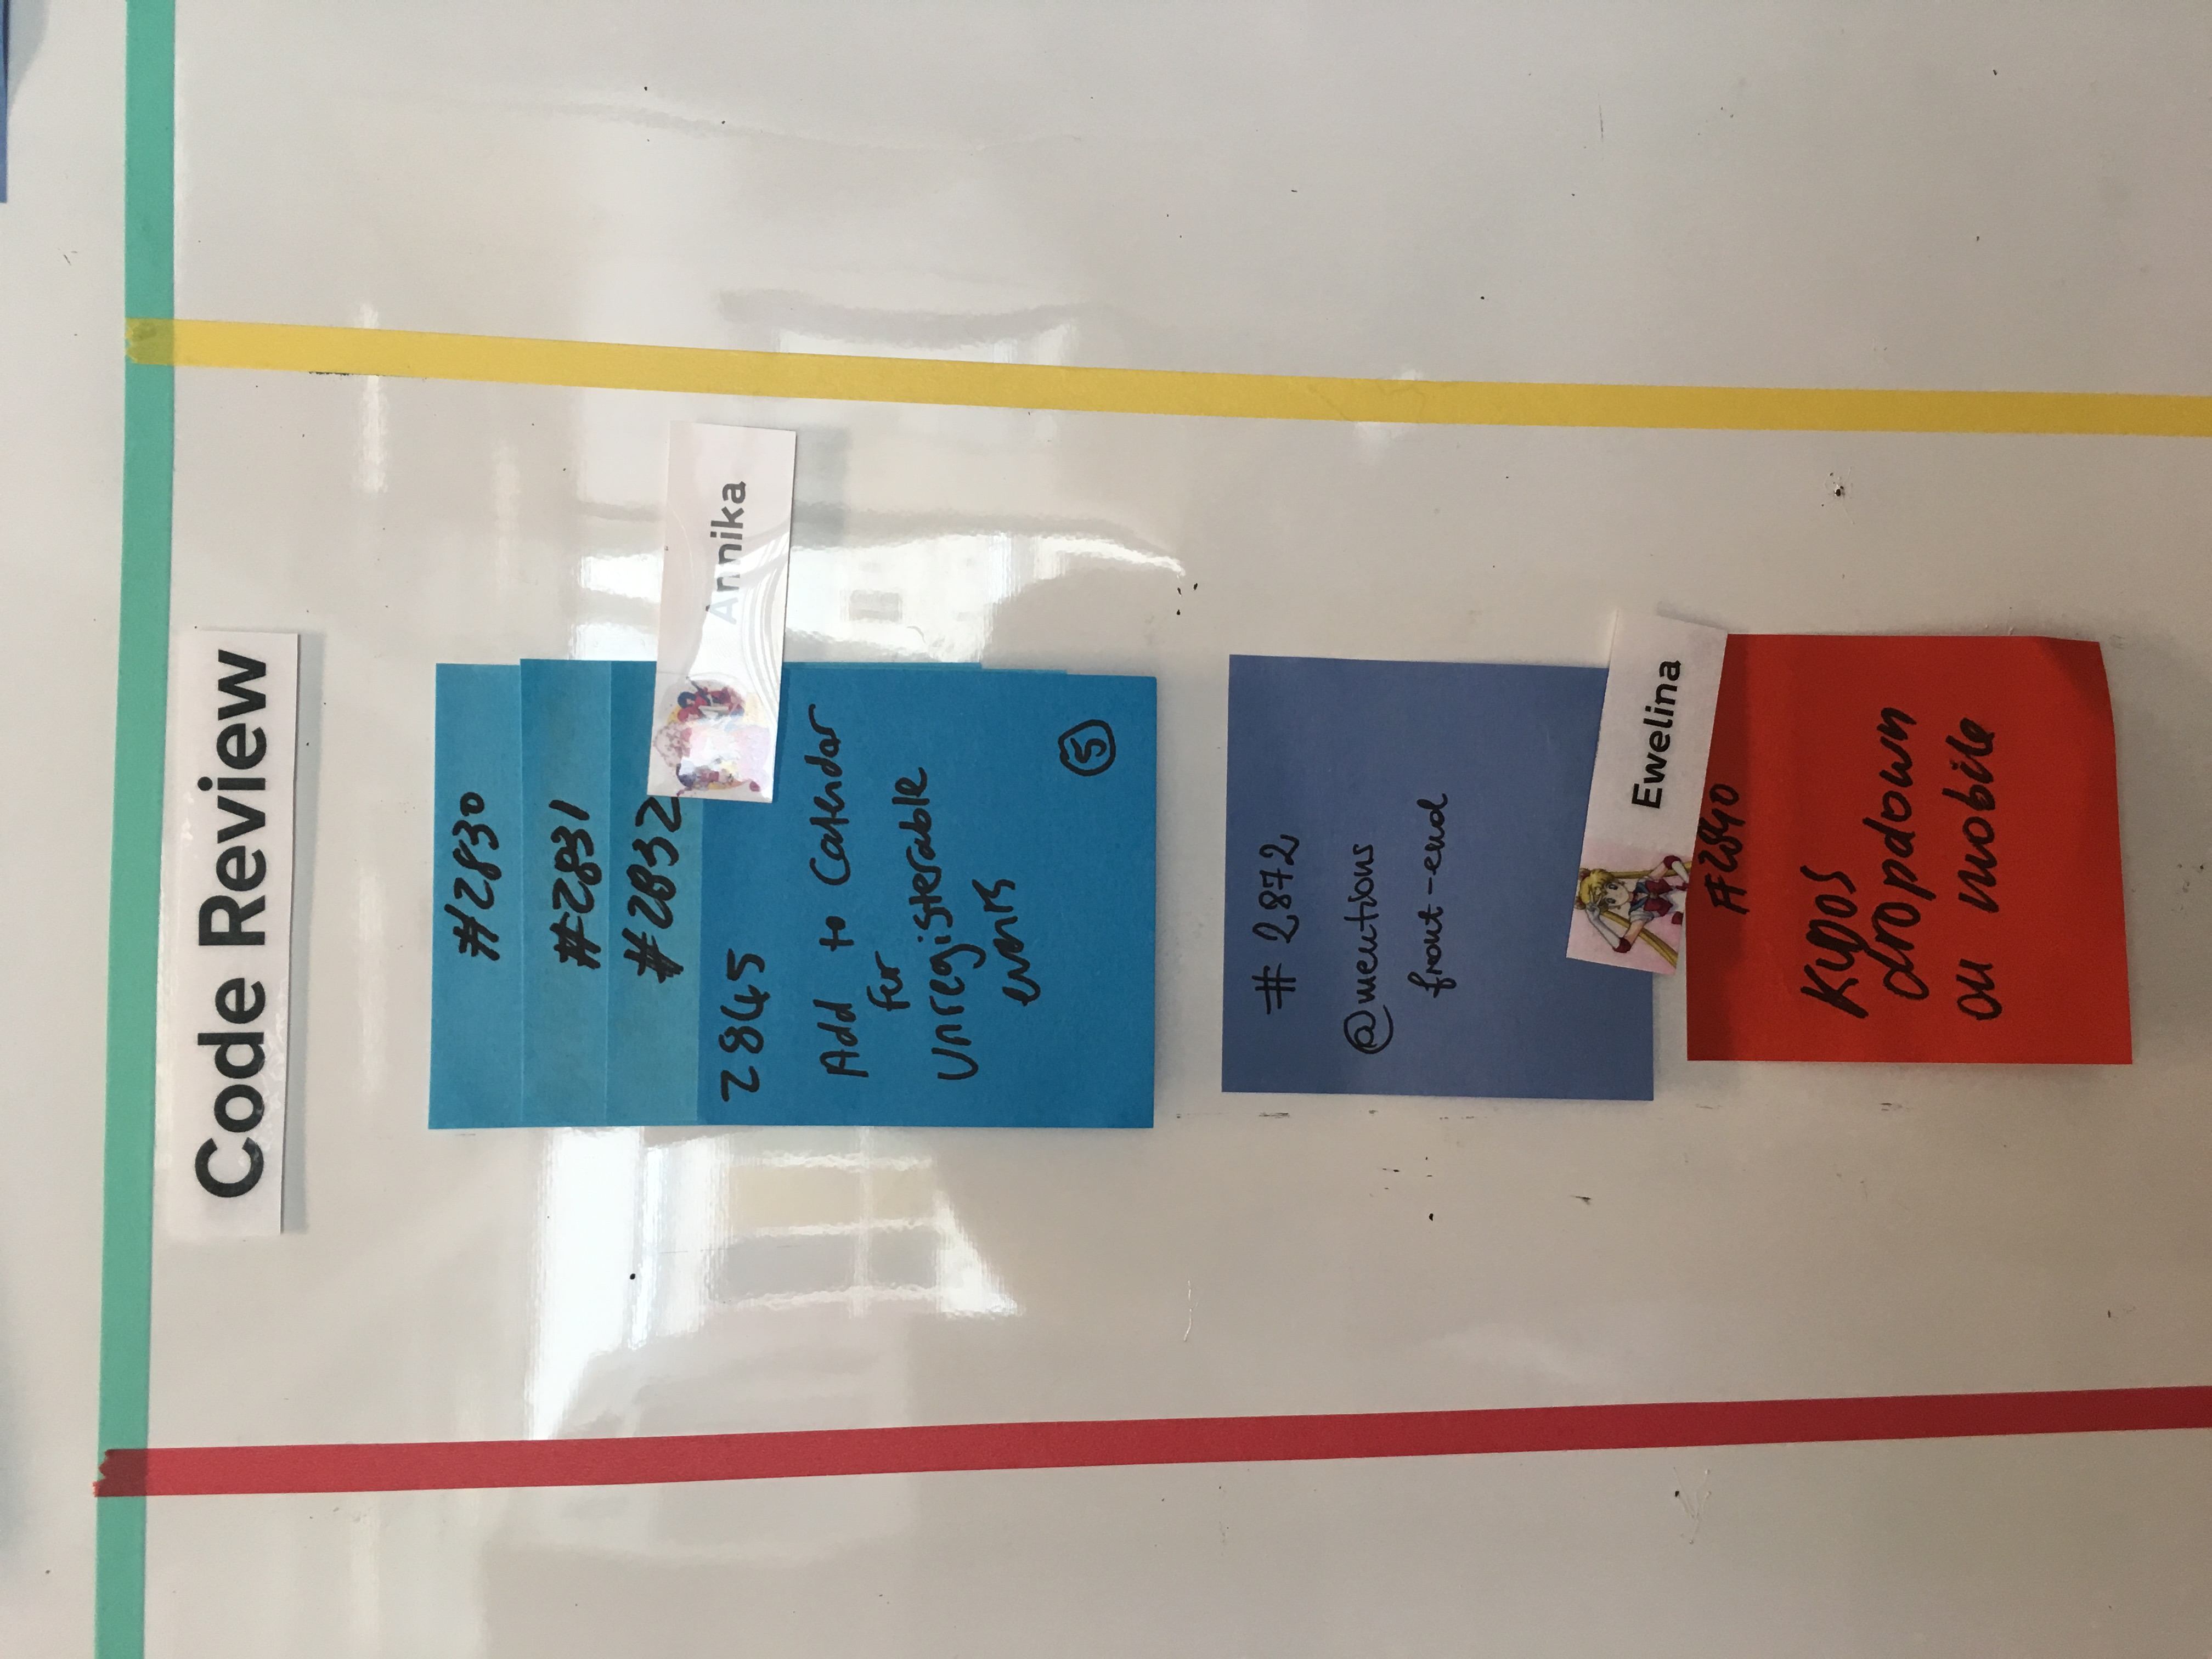 Code Review
#2830
#2831
#2832
Annika
2845
Add to Calendar
for
Unregisterable
events
5
# 2872
@mentions
front-end
Ewelina
#2840
KUDOS
dropdown
on mobile